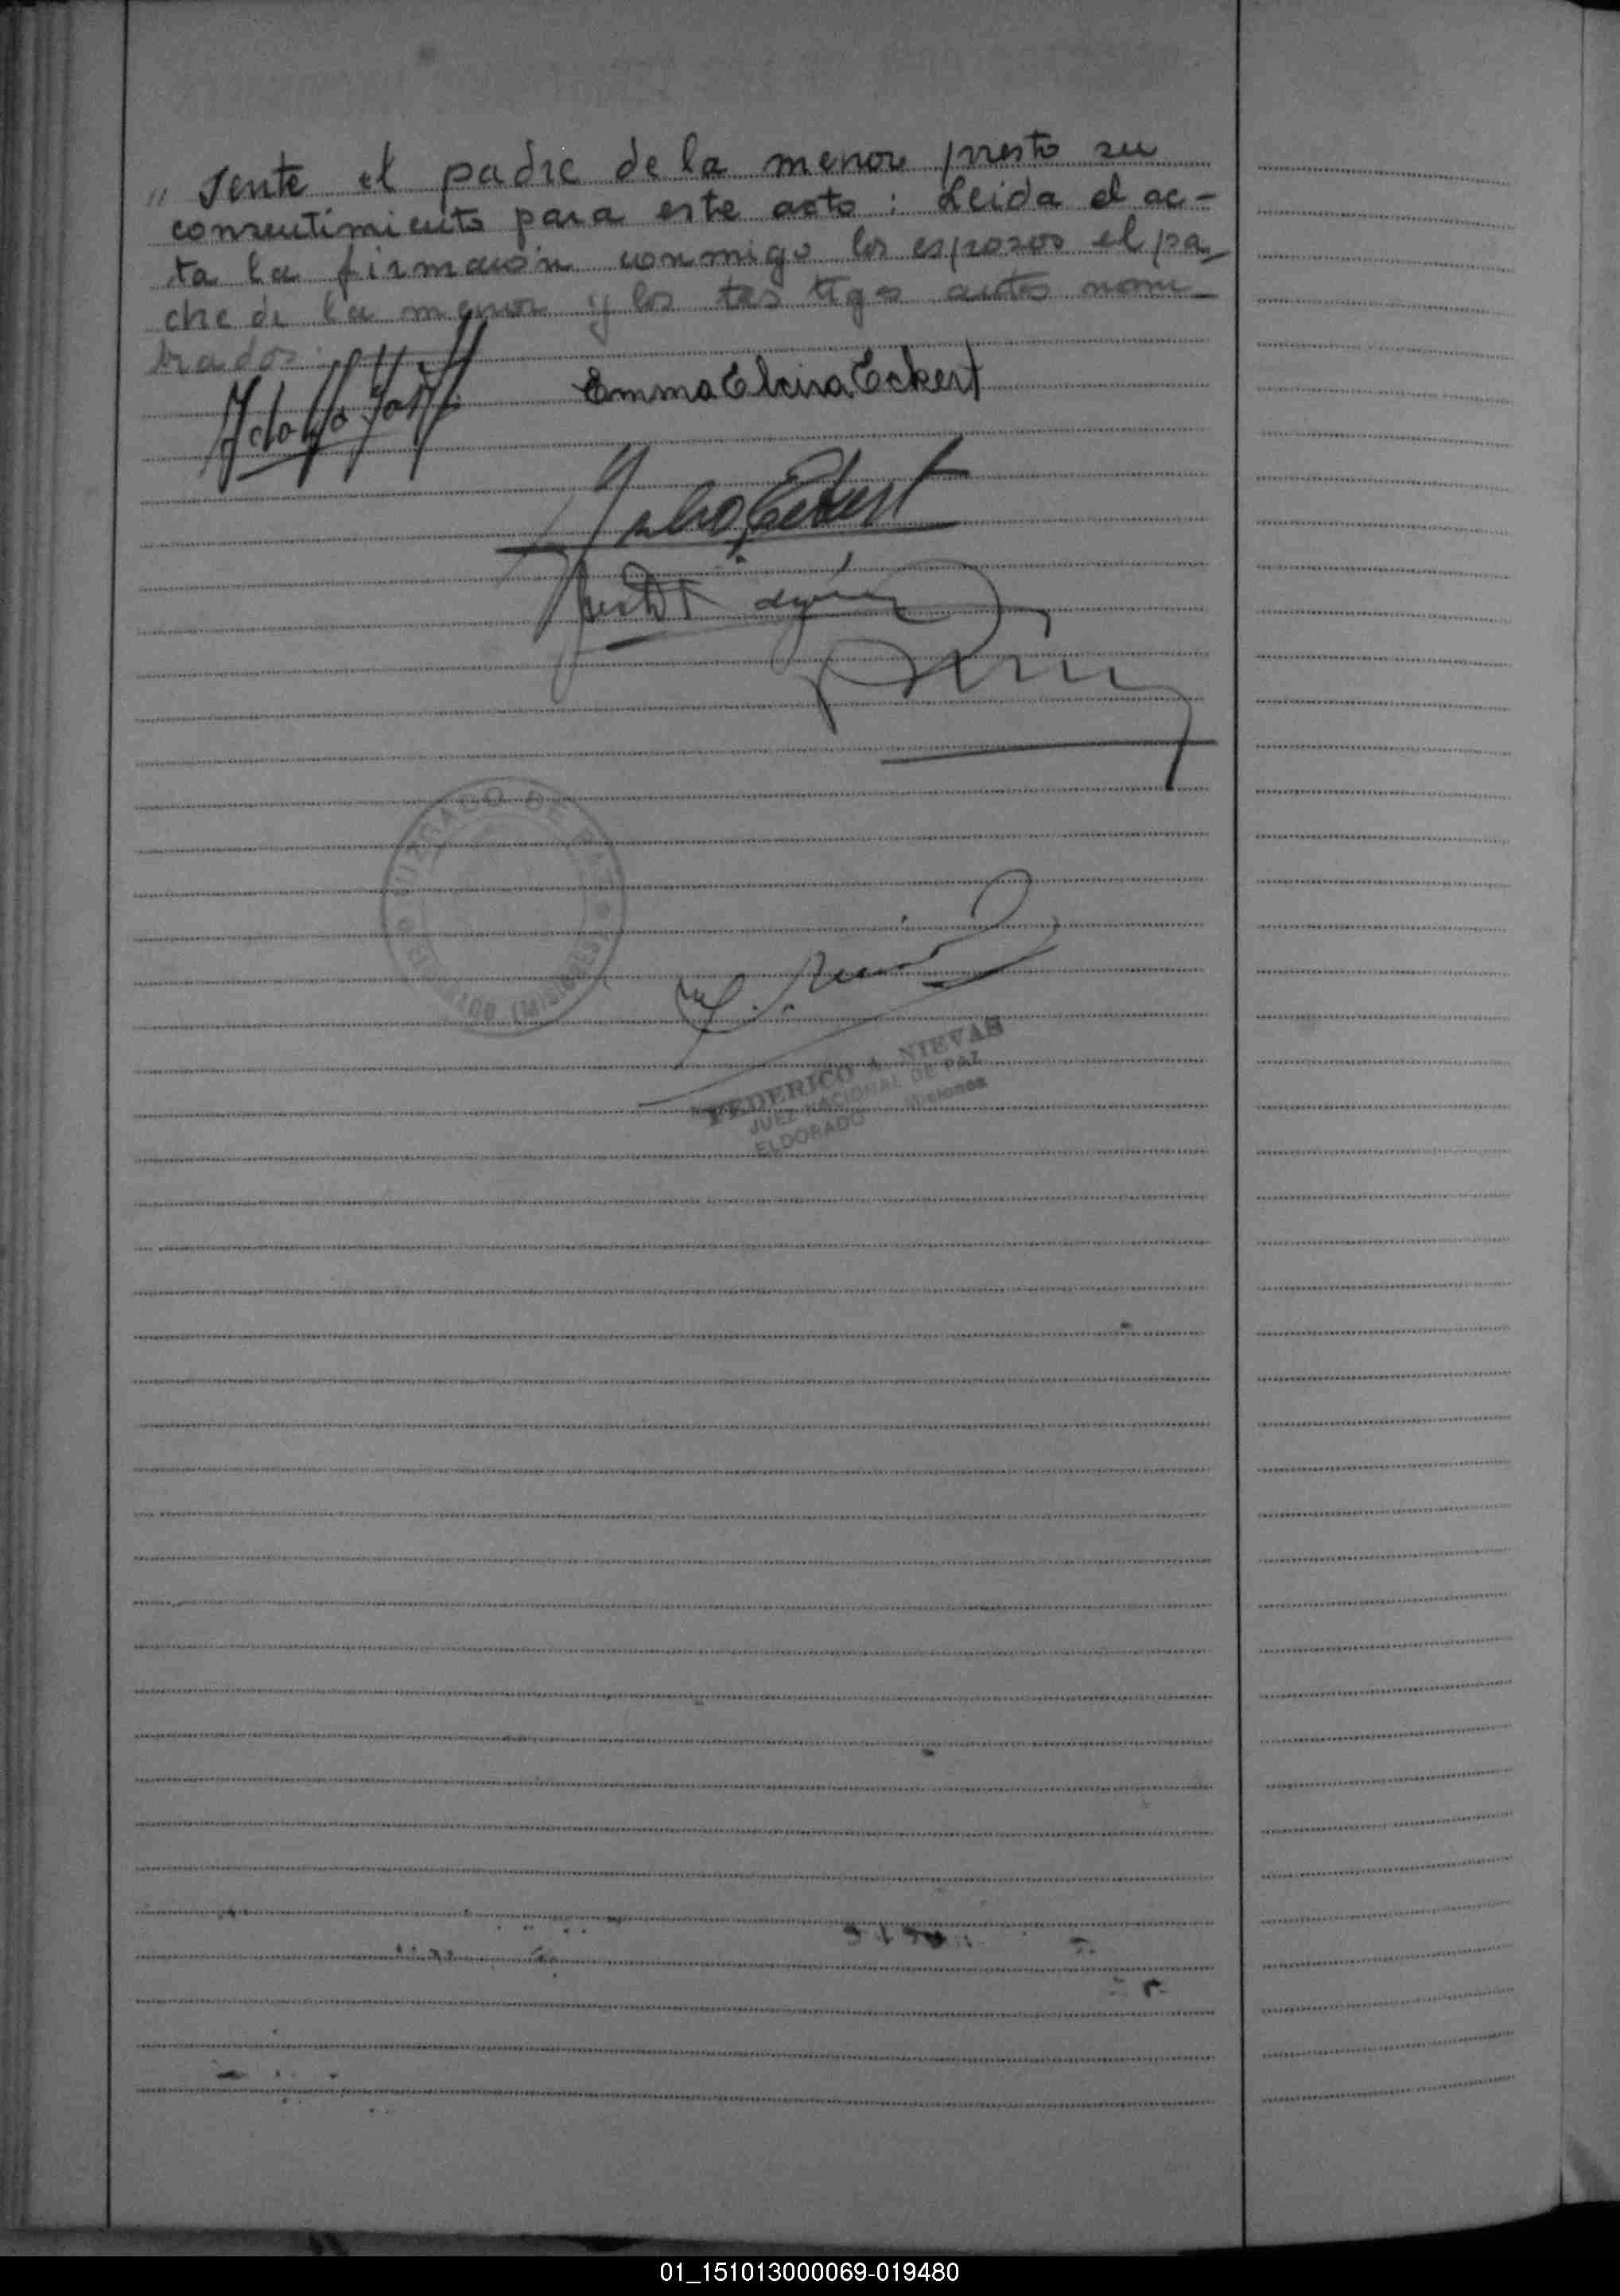 " sente el padre de la menor presto su
consentimiento para este acto : Leida el ac-
ta la firmaron conmigo los esposos el pa-
dre de la menor y los testigos antes nom-
brados.
Adolfo
Emma Elvira Eckert
Julio Eckert
JUZGADO DE PAZ
ELDORADO (MISIONES)
FEDERICO A. NIEVAS
JUEZ NACIONAL DE PAZ
ELDORADO Misiones
01_151013000069-019480